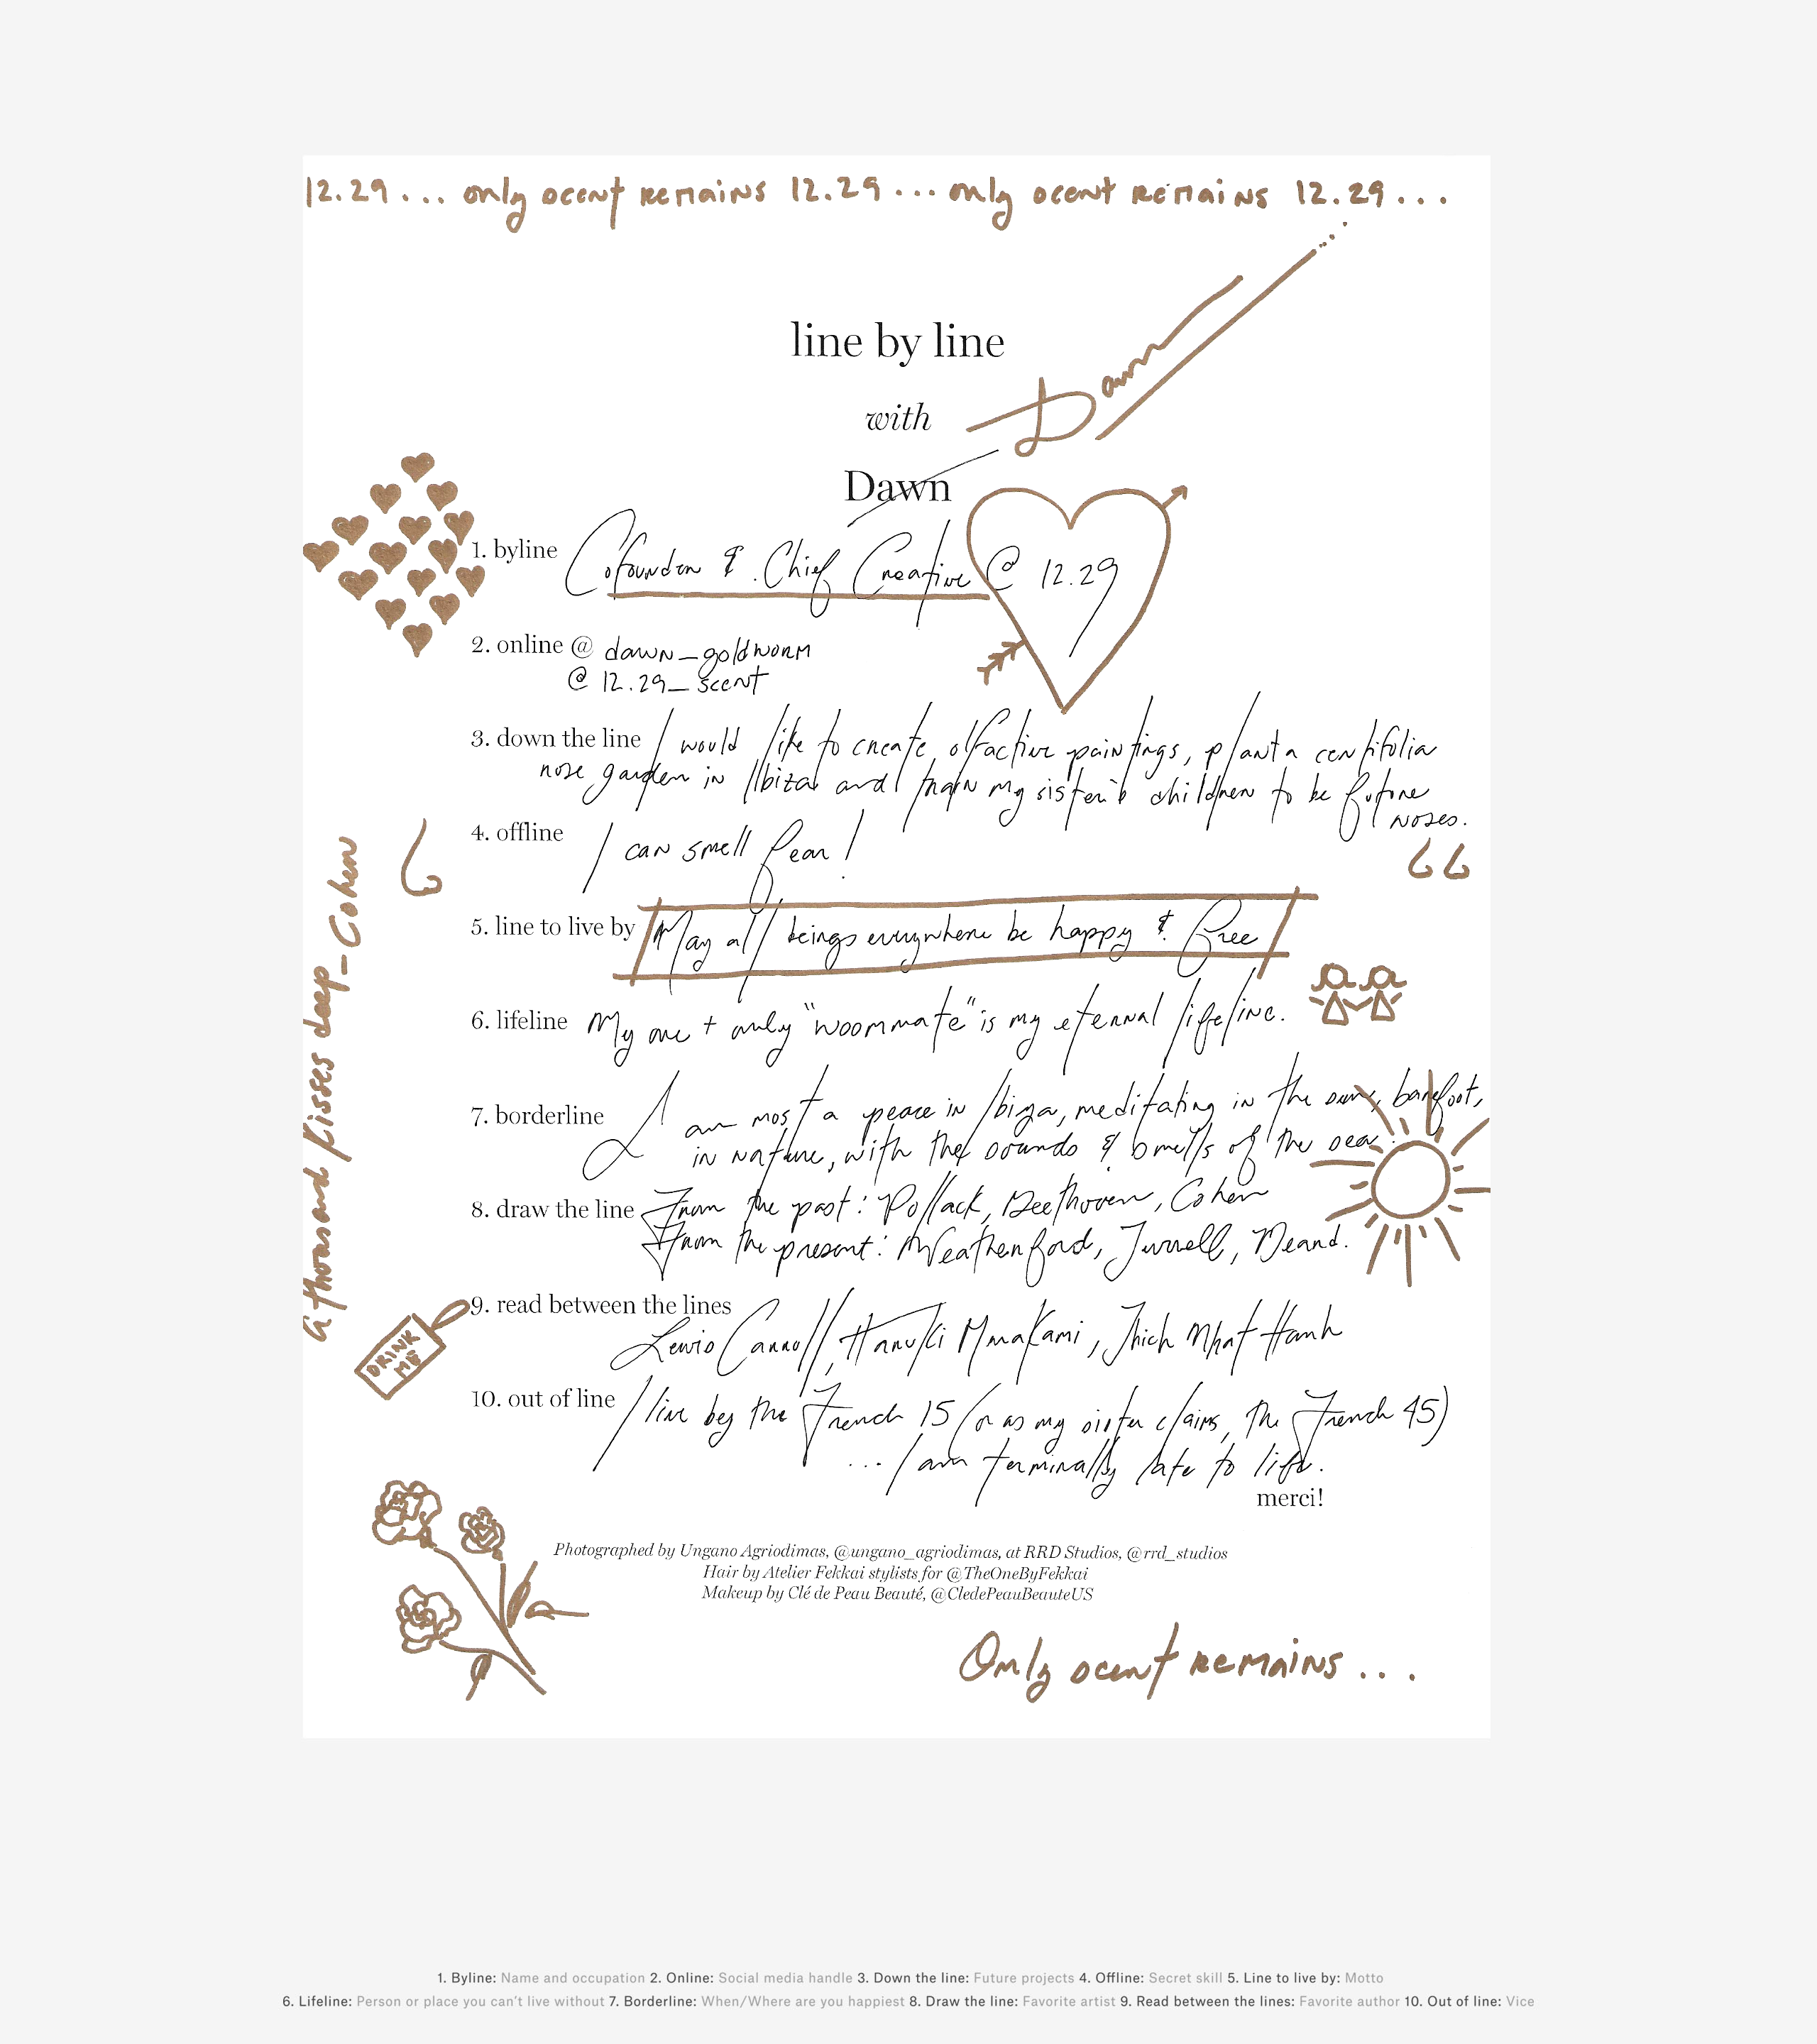 12.29... only scent remains 12.29... only scent remains 12.29...
line by line
with
Dawn
Dawn
1. byline Cofounder & Chief Creative @ 12.29
2. online @ dawn_goldworm
@ 12.29_scent
3. down the line I would like to create olfactive paintings, plant a centifolia
rose garden in Ibiza and train my sister's children to be future
noses.
4. offline I can smell fear!
5. line to live by May all beings everywhere be happy & free
6. lifeline My one + only "woommate" is my eternal lifeline.
7. borderline I am most a peace in Ibiza, meditating in the sun, barefoot,
in nature, with the sounds & smells of the sea.
8. draw the line From the past: Pollack, Beethoven, Cohen
From the present: Weatherford, Turrell, Meand.
9. read between the lines
Lewis Carroll, Haruki Murakami, Thich Nhat Hanh
10. out of line I live by the French 15 (or as my sister claims, the French 45)
... I am terminally late to life.
merci!
a thousand kisses deep - Cohen
DRINK
ME
Photographed by Ungano Agriodimas, @ungano_agriodimas, at RRD Studios, @rrd_studios
Hair by Atelier Fekkai stylists for @TheOneByFekkai
Makeup by Clé de Peau Beauté, @CledePeauBeauteUS
Only scent remains...
1. Byline: Name and occupation 2. Online: Social media handle 3. Down the line: Future projects 4. Offline: Secret skill 5. Line to live by: Motto
6. Lifeline: Person or place you can't live without 7. Borderline: When/Where are you happiest 8. Draw the line: Favorite artist 9. Read between the lines: Favorite author 10. Out of line: Vice